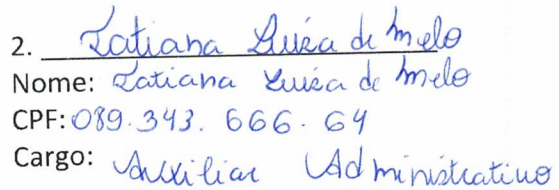 2. Tatiana Luiza de Melo
Nome: Tatiana Luiza de Melo
CPF: 089.343.666-64
Cargo: Auxiliar Administrativo